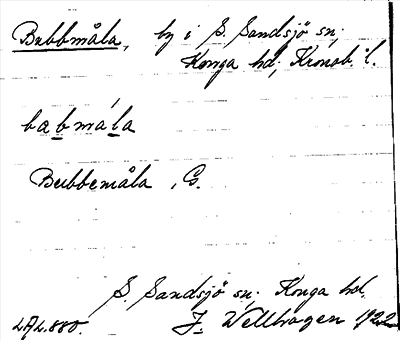 Bubbmåla, by i S. Sandsjö sn.
Konga hd, Kronob. l.
bɑbmála
Bubbemåla, G.
S. Sandsjö sn. Konga hd.
LAL.880. J. Wellhagen 1922